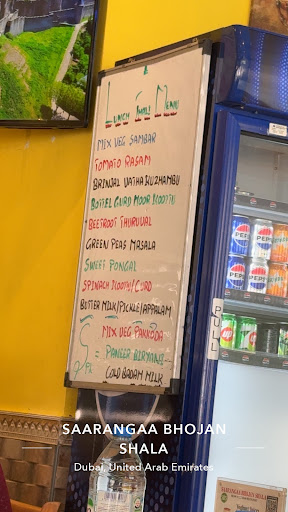 LUNCH THALI MENU
MIX VEG SAMBAR
TOMATO RASAM
BRINJAL VATHA KUZHAMBU
BOTTEL GURD MOOR KOOTTU
BEETROOT THURUVAL
GREEN PEAS MASALA
SWEET PONGAL
SPINACH KOOTH/CURD
BUTTER MILK/PICKLE/APPALAM
MIX VEG PAKKODA
= PANEER BIRYANI
COLD BADAM MILK
PULL
pepsi pepsi
pepsi pepsi
SAARANGAA BHOJAN
SHALA
Dubai, United Arab Emirates
SAARANGAA BHOJAN SHALA